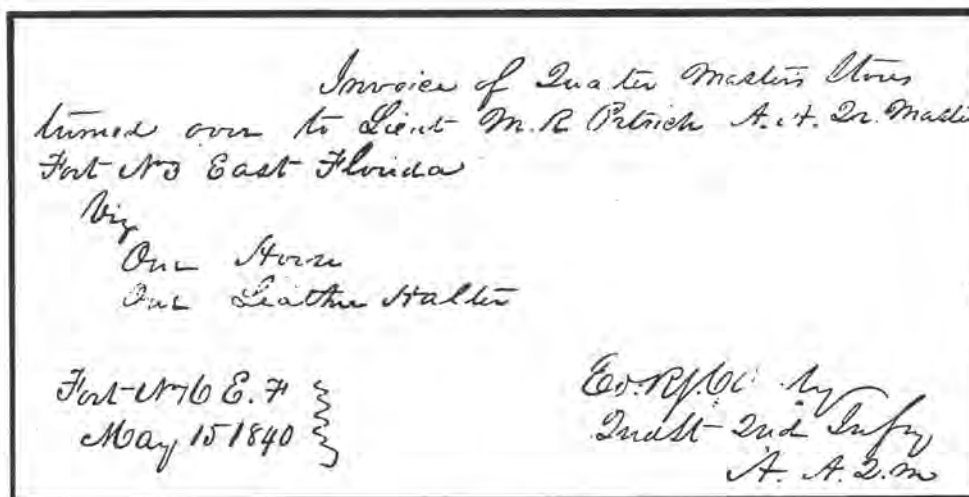 Invoice of Quater Masters Stores
turned over to Lieut M. R Patrick A. A. Qr. Master
Fort No 3 East Florida
Viz
One Horse
One Leather Halter
Fort No 6 E. F
May 15 1840
2nd Infry
A. A. Q. M